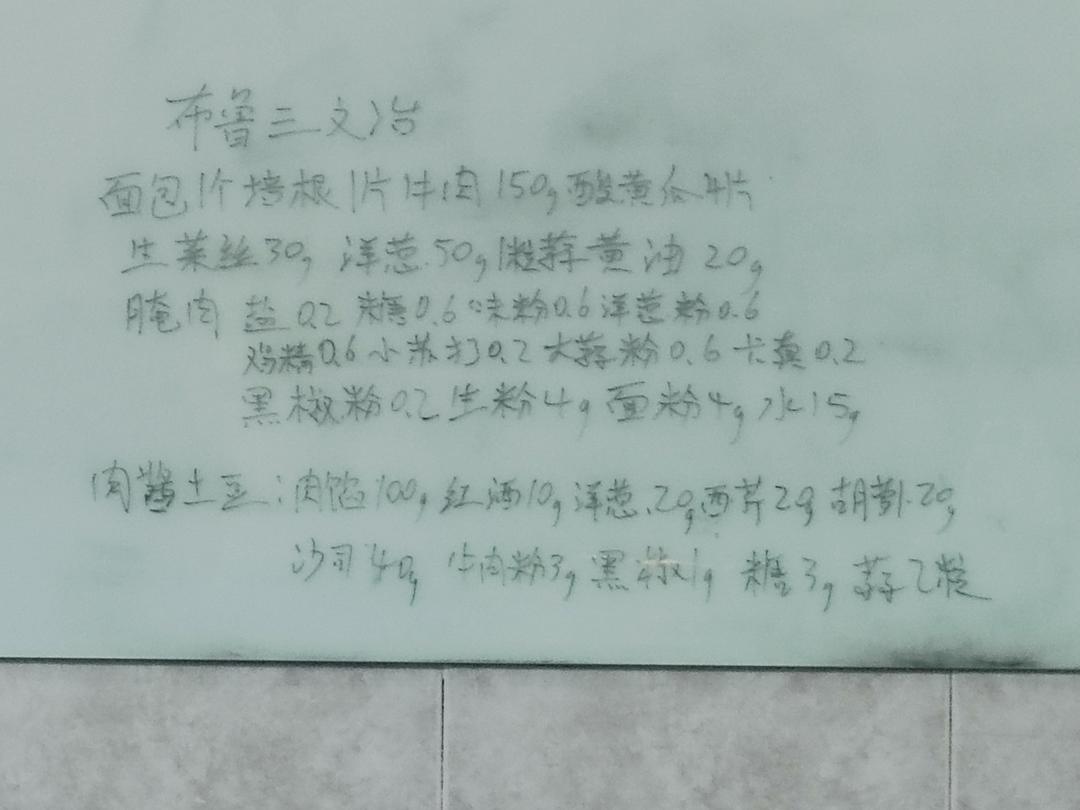 布鲁三文治
面包1个培根1片牛肉150g酸黄瓜4片
生菜丝30g 洋葱50g 1粒蒜黄油20g
腌肉 盐0.2 糖0.6味粉0.6洋葱粉0.6
鸡精0.6小苏打0.2大蒜粉0.6卡真0.2
黑椒粉0.2生粉4g面粉4g水15g
肉酱土豆:肉馅100g红酒10g洋葱20g西芹20g胡萝卜20g
沙司40g 牛肉粉3g黑椒1g 糖3g 蒜2粒